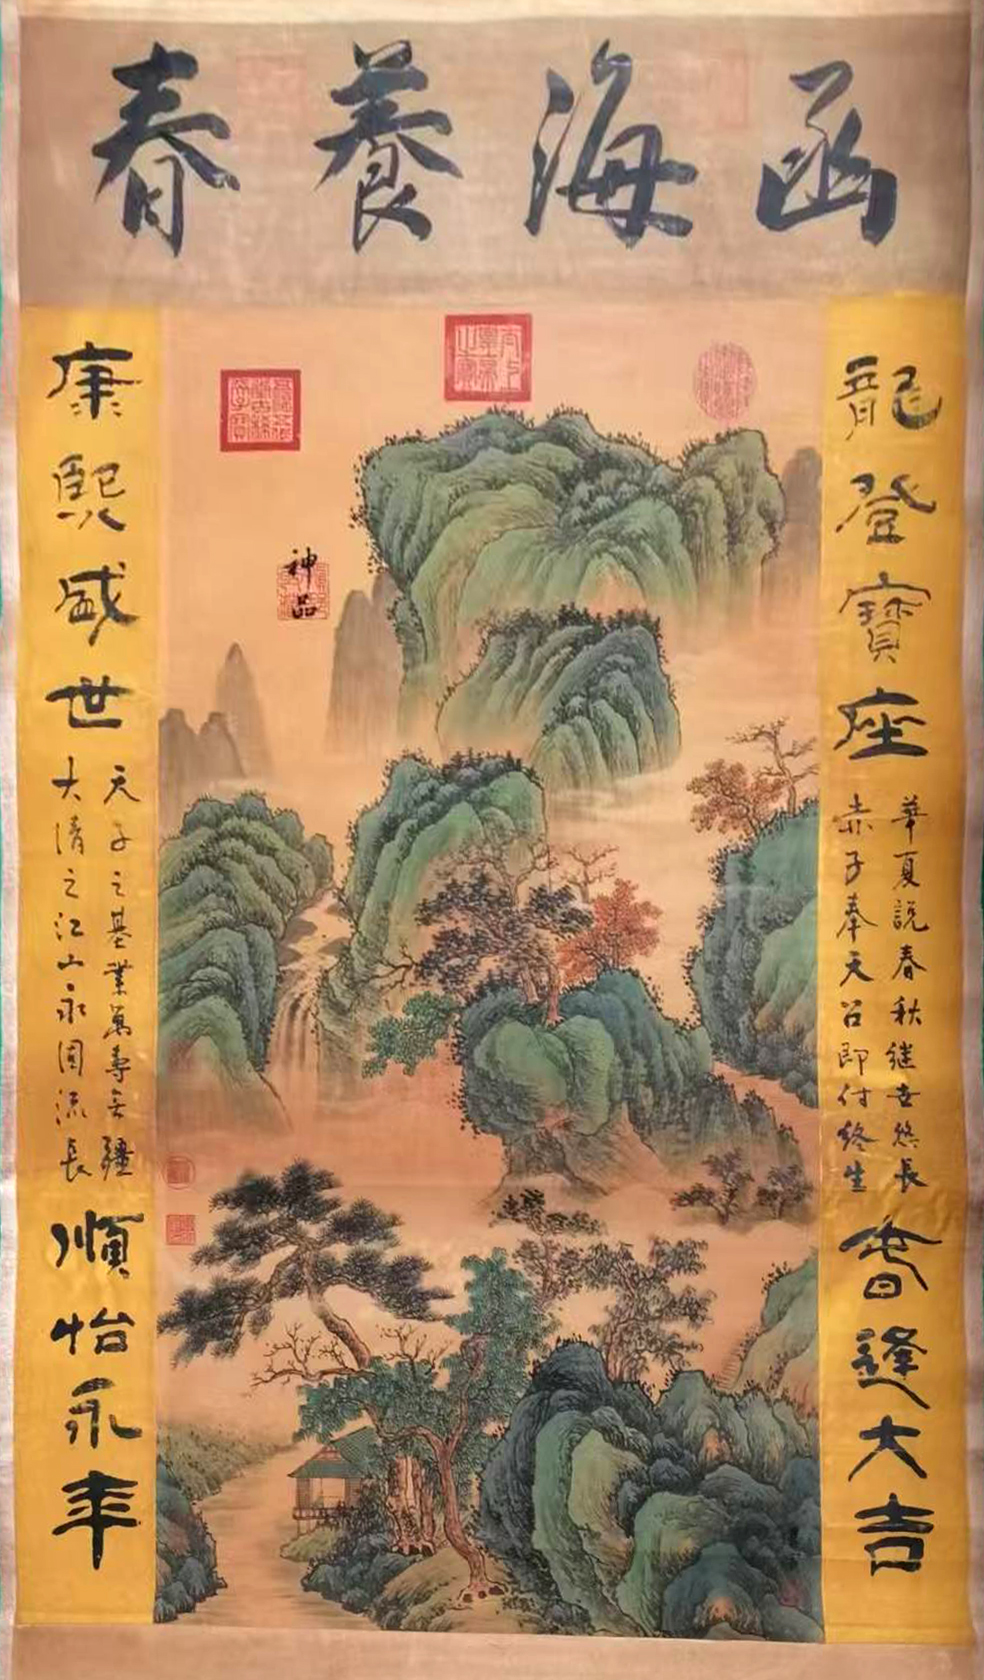 函海養春
龍登寶座
華夏説春秋継世悠長
赤子奉天召即付終生
春逢大吉
康熙盛世
天子之基業萬壽無疆
大清之江山永固流長
順怡永年
神品